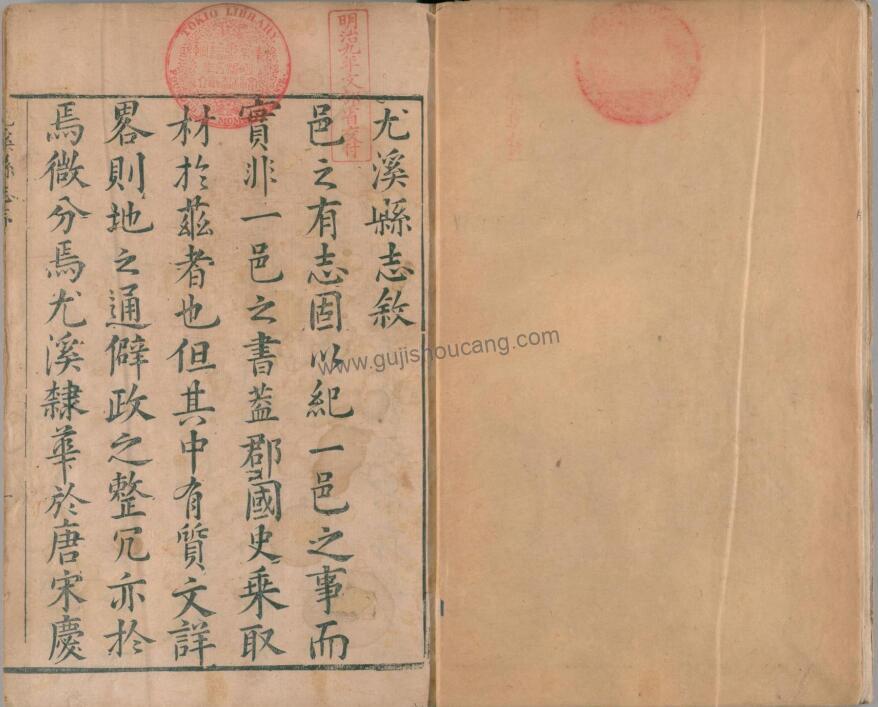 尤溪縣志敘
邑之有志固以紀一邑之事而
實非一邑之書葢郡國史乗取
材於茲者也但其中有質文詳
畧則地之通僻政之整冗亦於
焉微分焉尤溪隸華於唐宋慶
TOKIO LIBRARY
明治九年文部省交付
www.gujishoucang.com